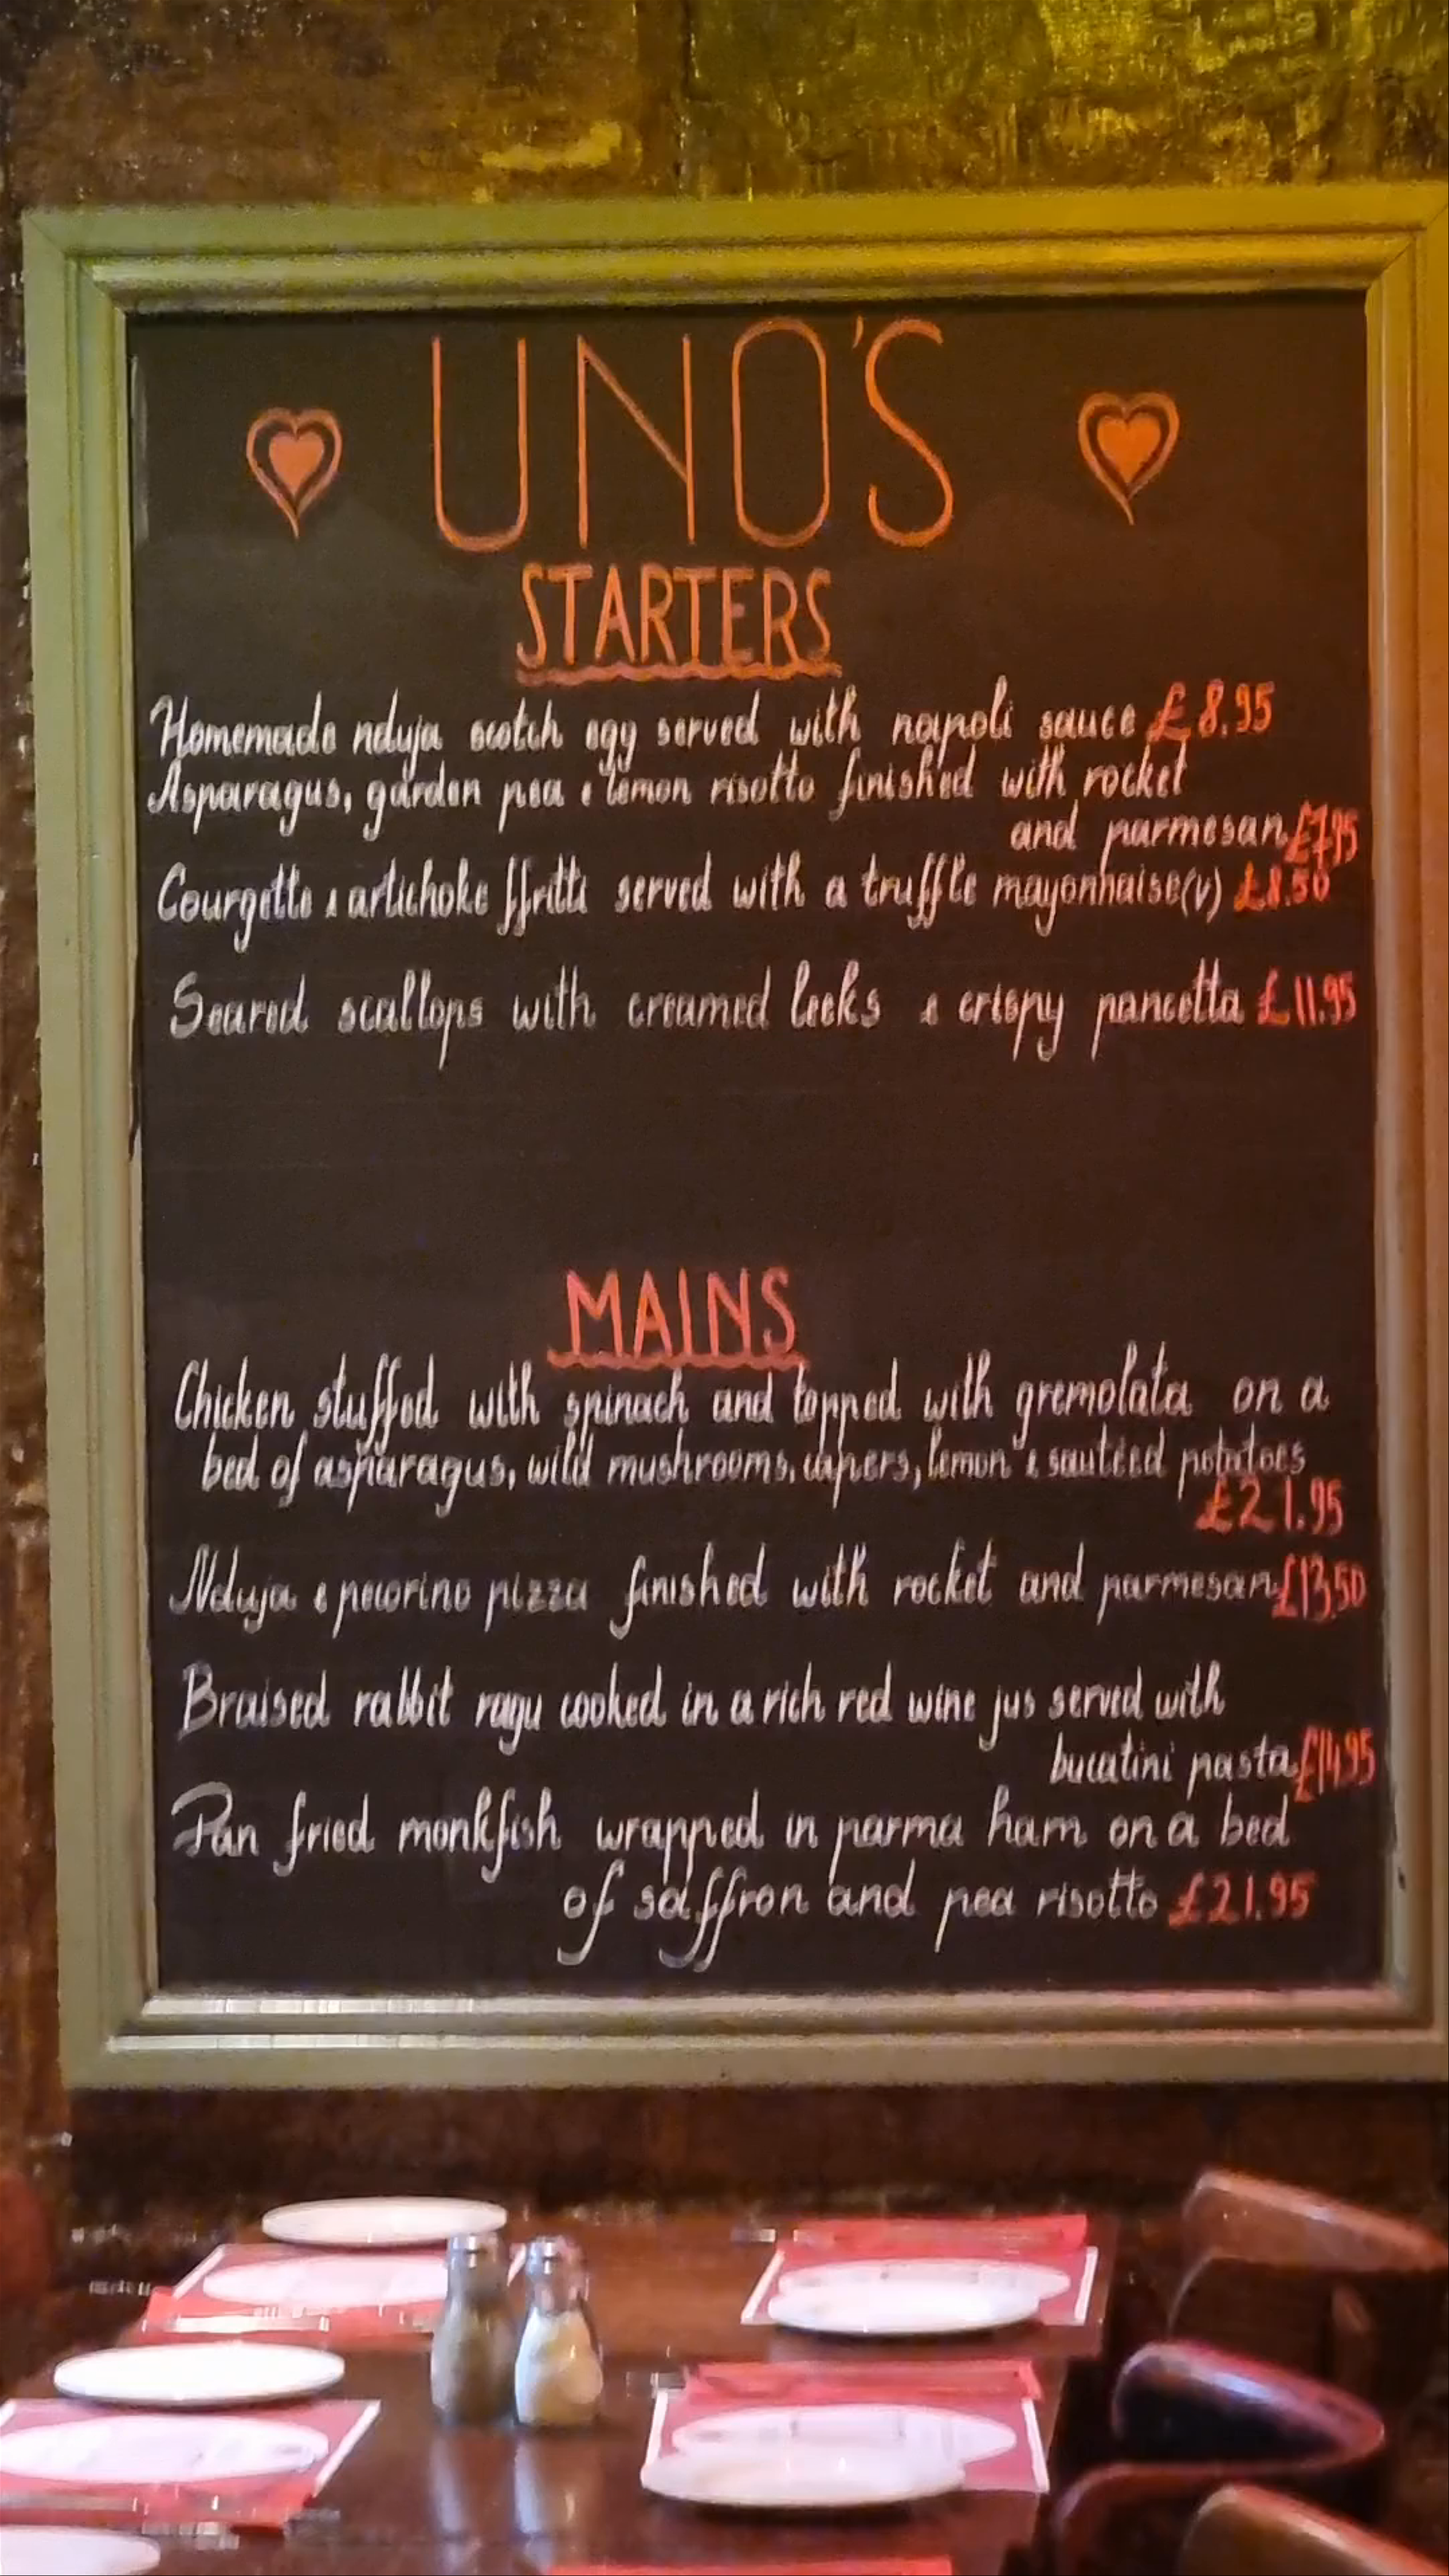 UNO'S
STARTERS
Homemade nduja scotch egg served with napoli sauce £8.95
Asparagus, garden pea & lemon risotto finished with rocket
and parmesan £7.95
Courgette & artichoke ffritti served with a truffle mayonnaise(v) £8.50
Seared scallops with creamed leeks & crispy pancetta £11.95
MAINS
Chicken stuffed with spinach and topped with gremolata on a
bed of asparagus, wild mushrooms, capers, lemon & sautéed potatoes
£21.95
Nduja & pecorino pizza finished with rocket and parmesan £13.50
Braised rabbit ragu cooked in a rich red wine jus served with
bucatini pasta £14.95
Pan fried monkfish wrapped in parma ham on a bed
of saffron and pea risotto £21.95